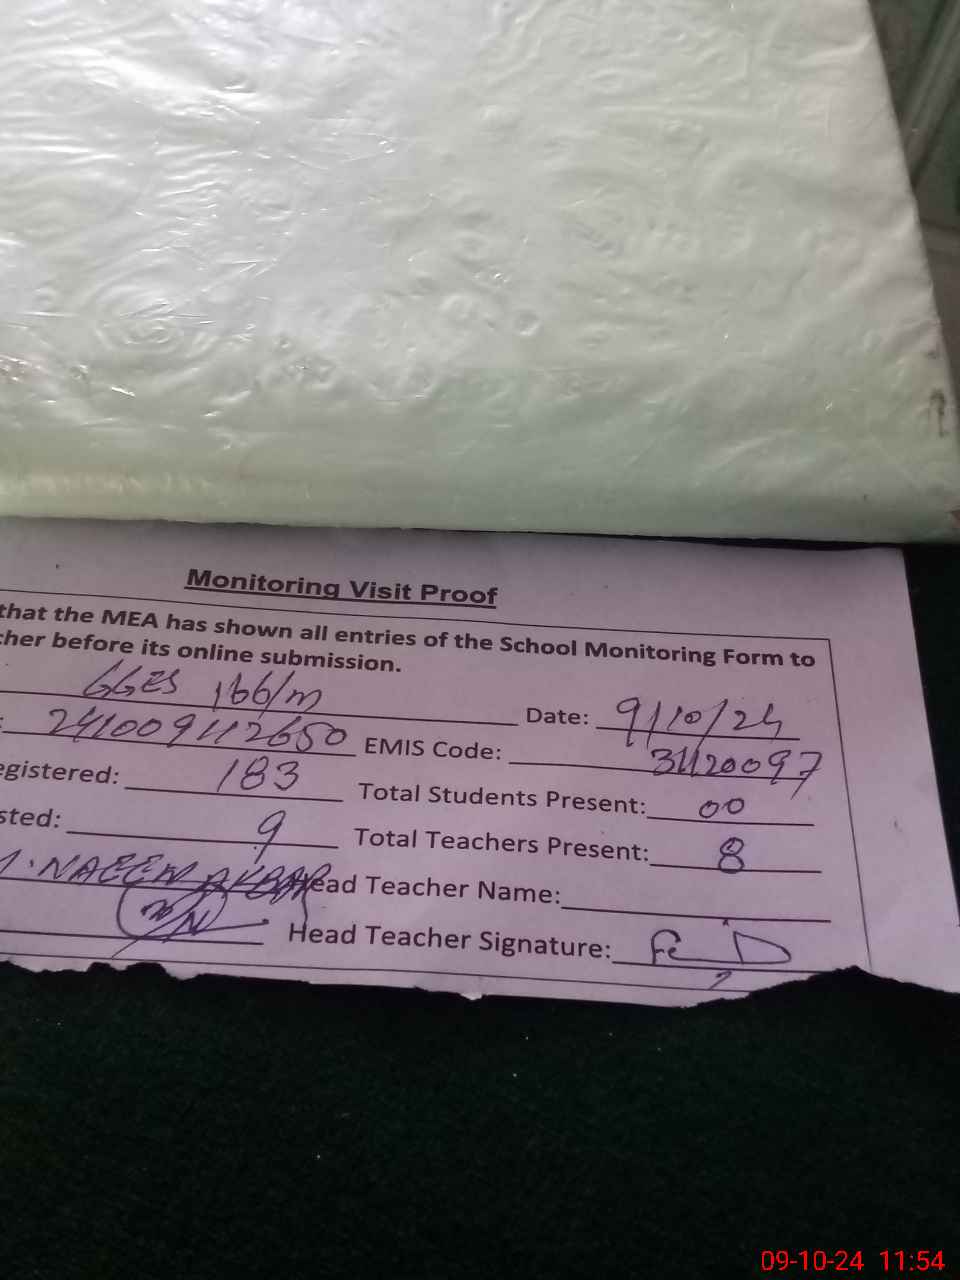 Monitoring Visit Proof
that the MEA has shown all entries of the School Monitoring Form to
cher before its online submission.
GGES 166/m Date: 9/10/24
: 241009112650 EMIS Code: 31120097
egistered: 183 Total Students Present: 00
sted: 9 Total Teachers Present: 8
M. NAEEM AKBAR Head Teacher Name:
Head Teacher Signature:
09-10-24 11:54